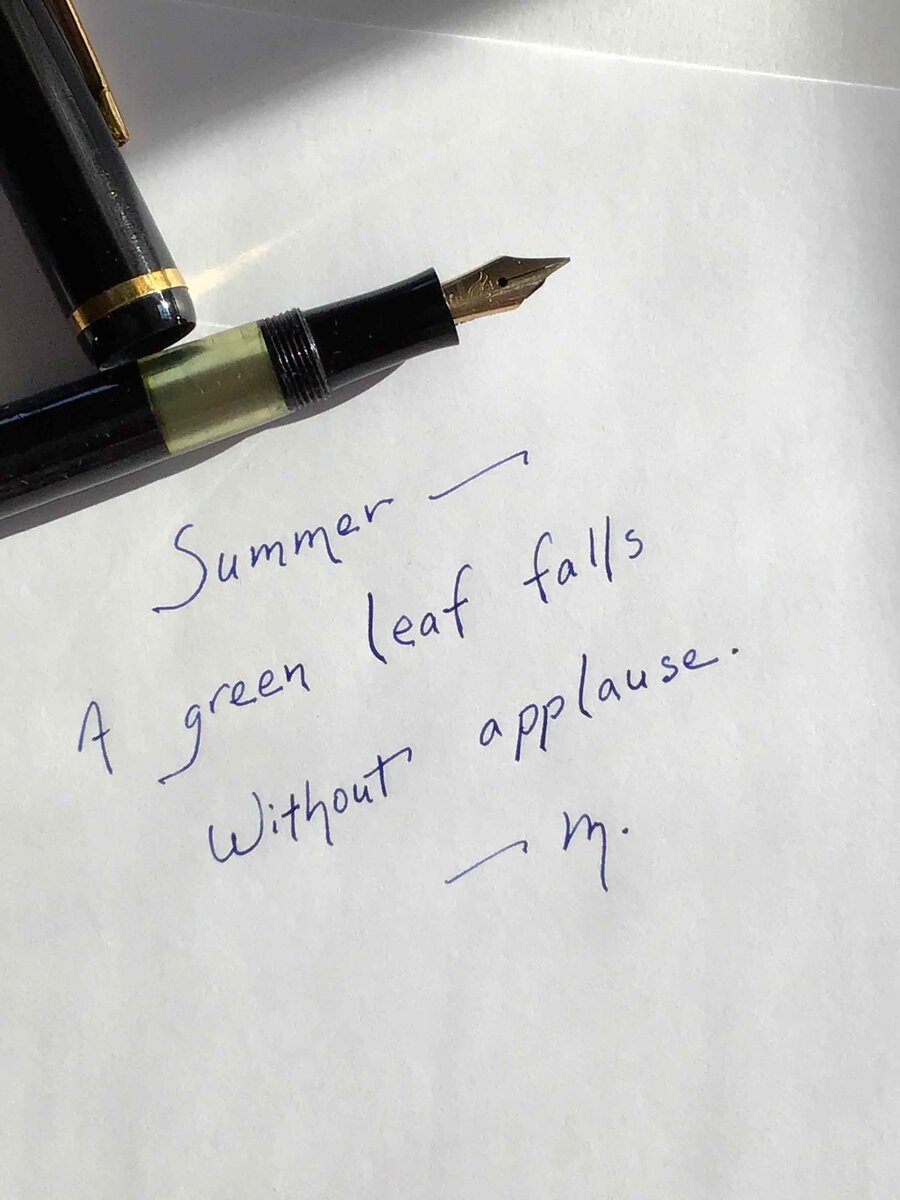 Summer —
A green leaf falls
Without applause.
— m.